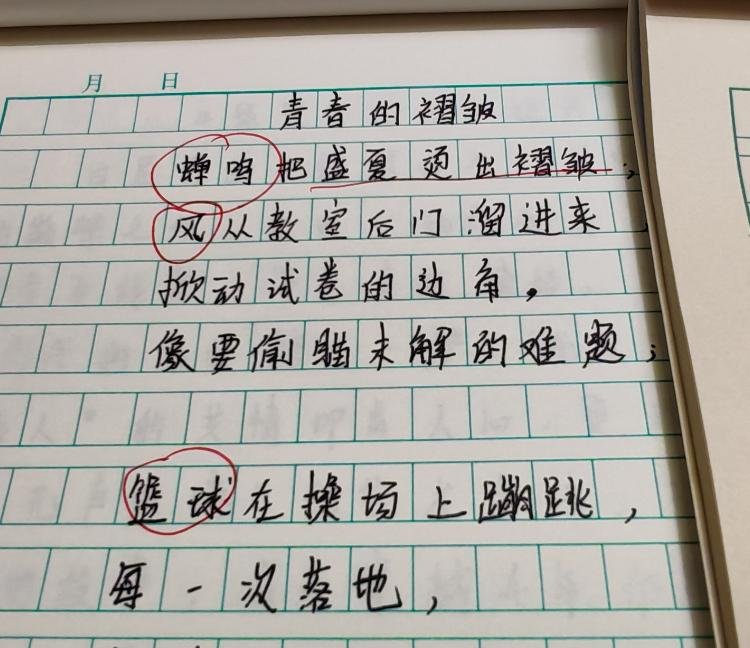 月 日
青春的褶皱
蝉鸣把盛夏烫出褶皱；
风从教室后门溜进来
掀动试卷的边角，
像要偷瞄未解的难题；
篮球在操场上蹦跳，
每一次落地，